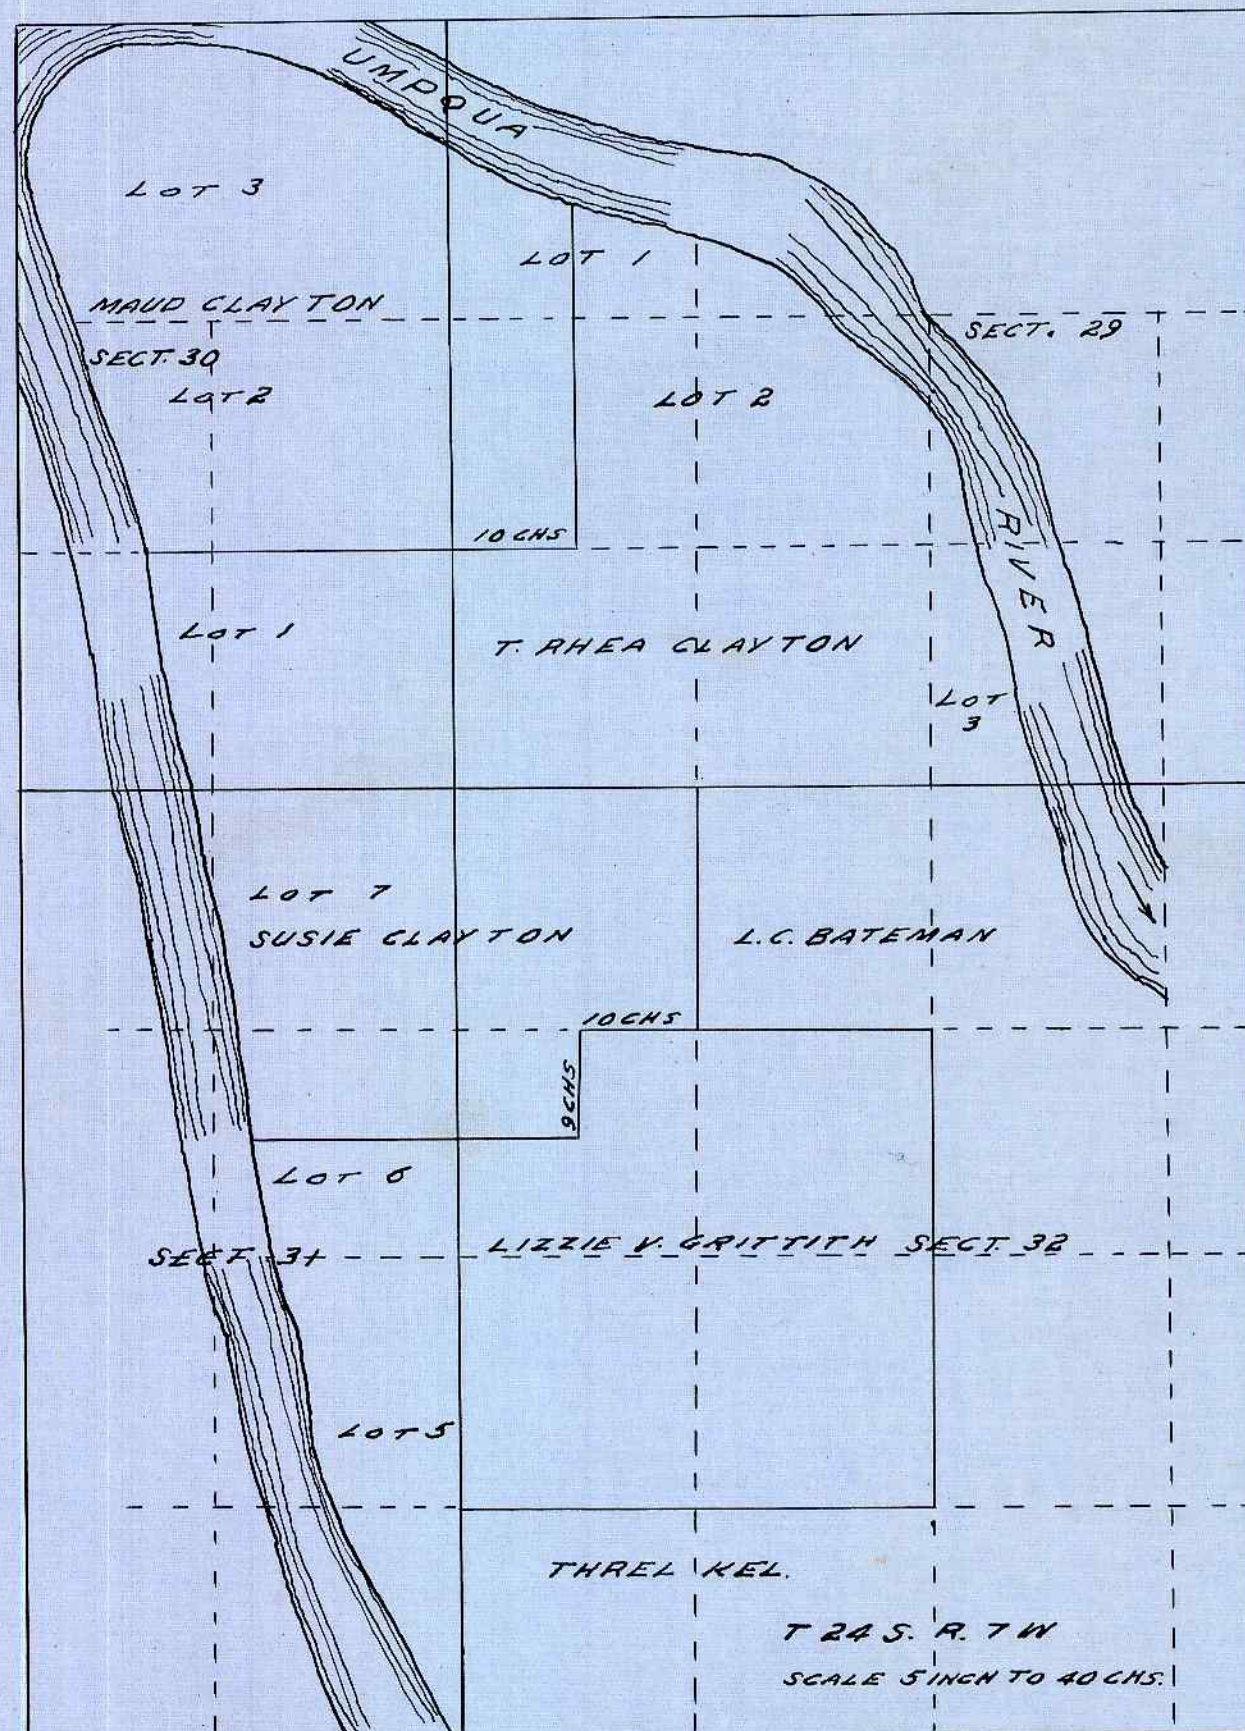 UMPQUA
LOT 3
LOT 1
MAUD CLAYTON
SECT. 29
SECT. 30
LOT 2
LOT 2
10 CHS
RIVER
LOT 1
T. RHEA CLAYTON
LOT
3
LOT 7
SUSIE CLAYTON
L.C. BATEMAN
10 CHS
9 CHS
LOT 6
SECT. 31
LIZZIE V. GRITTITH SECT. 32
LOT 5
THREL KEL.
T 24 S. R. 7 W
SCALE 5 INCH TO 40 CHS.